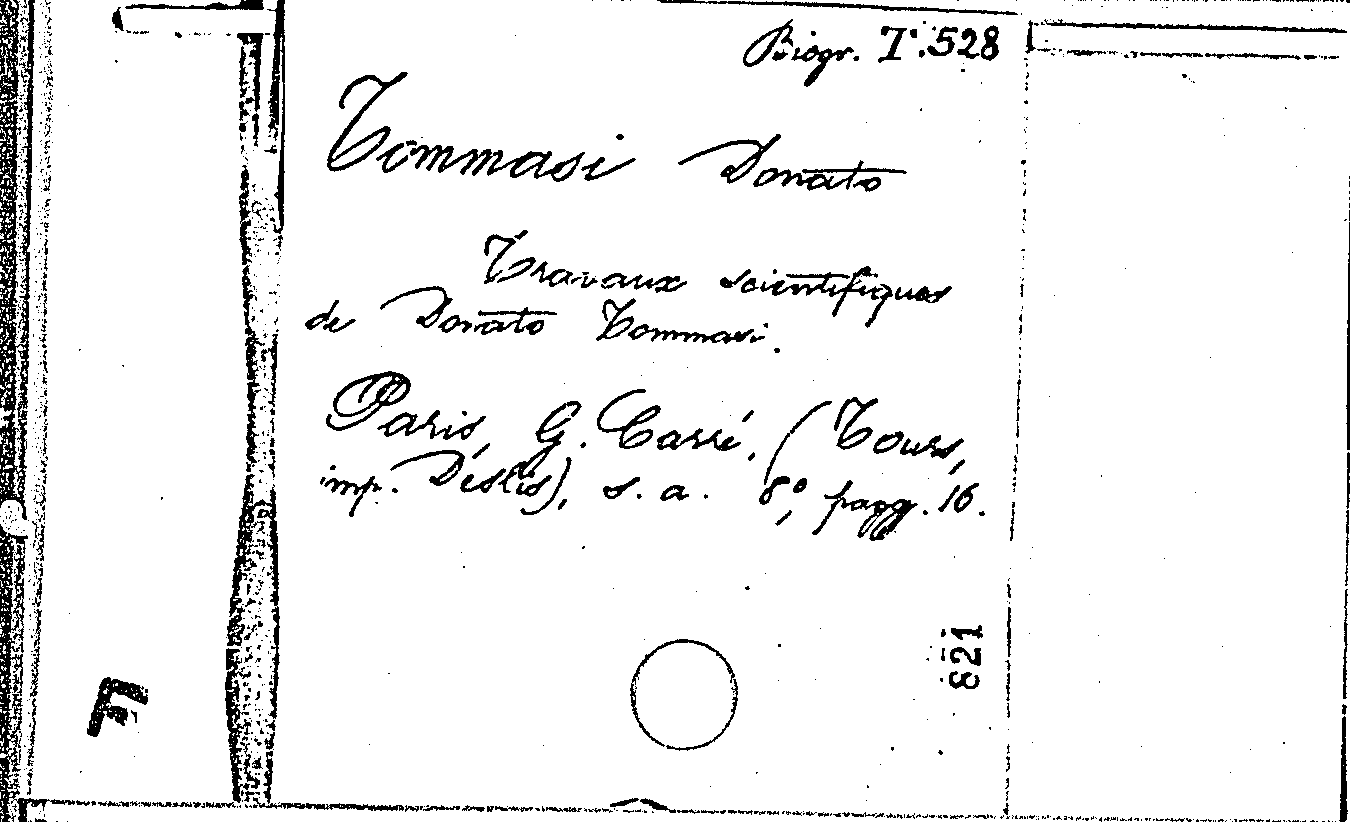 Biogr. T. 528
Tommasi Donato
Travaux scientifiques
de Donato Tommasi.
Paris, G. Carré. (Tours,
imp. Deslis), s. a. 8°, pagg. 16.
821